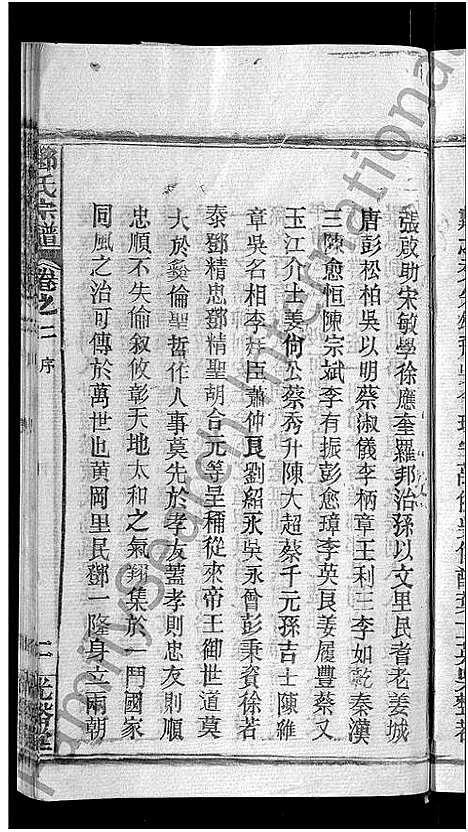 張啟助宋敏學徐應奎羅邦治孫以文里民耆老姜城
唐彭松柏吳以明蔡淑儀李柄章王利三李如乾秦漢
三陳愈恒陳宗斌李有振彭愈璋李英良姜履豐蔡又
玉江介士姜何公蔡秀升陳大超蔡千元孫吉士陳維
章吳名相李拜臣蕭仲良劉紹永吳永曾彭秉資徐若
泰鄧精忠鄧精聖朝合元等呈稱從來帝王御世道莫
大於彝倫聖哲作人事莫先於孝友蓋孝則忠友則順
忠順不失倫叙攸彰天地太和之氣翔集於一門國家
同風之治可傳於萬世也黃岡里民鄧一隆身立兩朝
鄧氏宗譜
卷之二 序
二 光裕堂
FamilySearch International